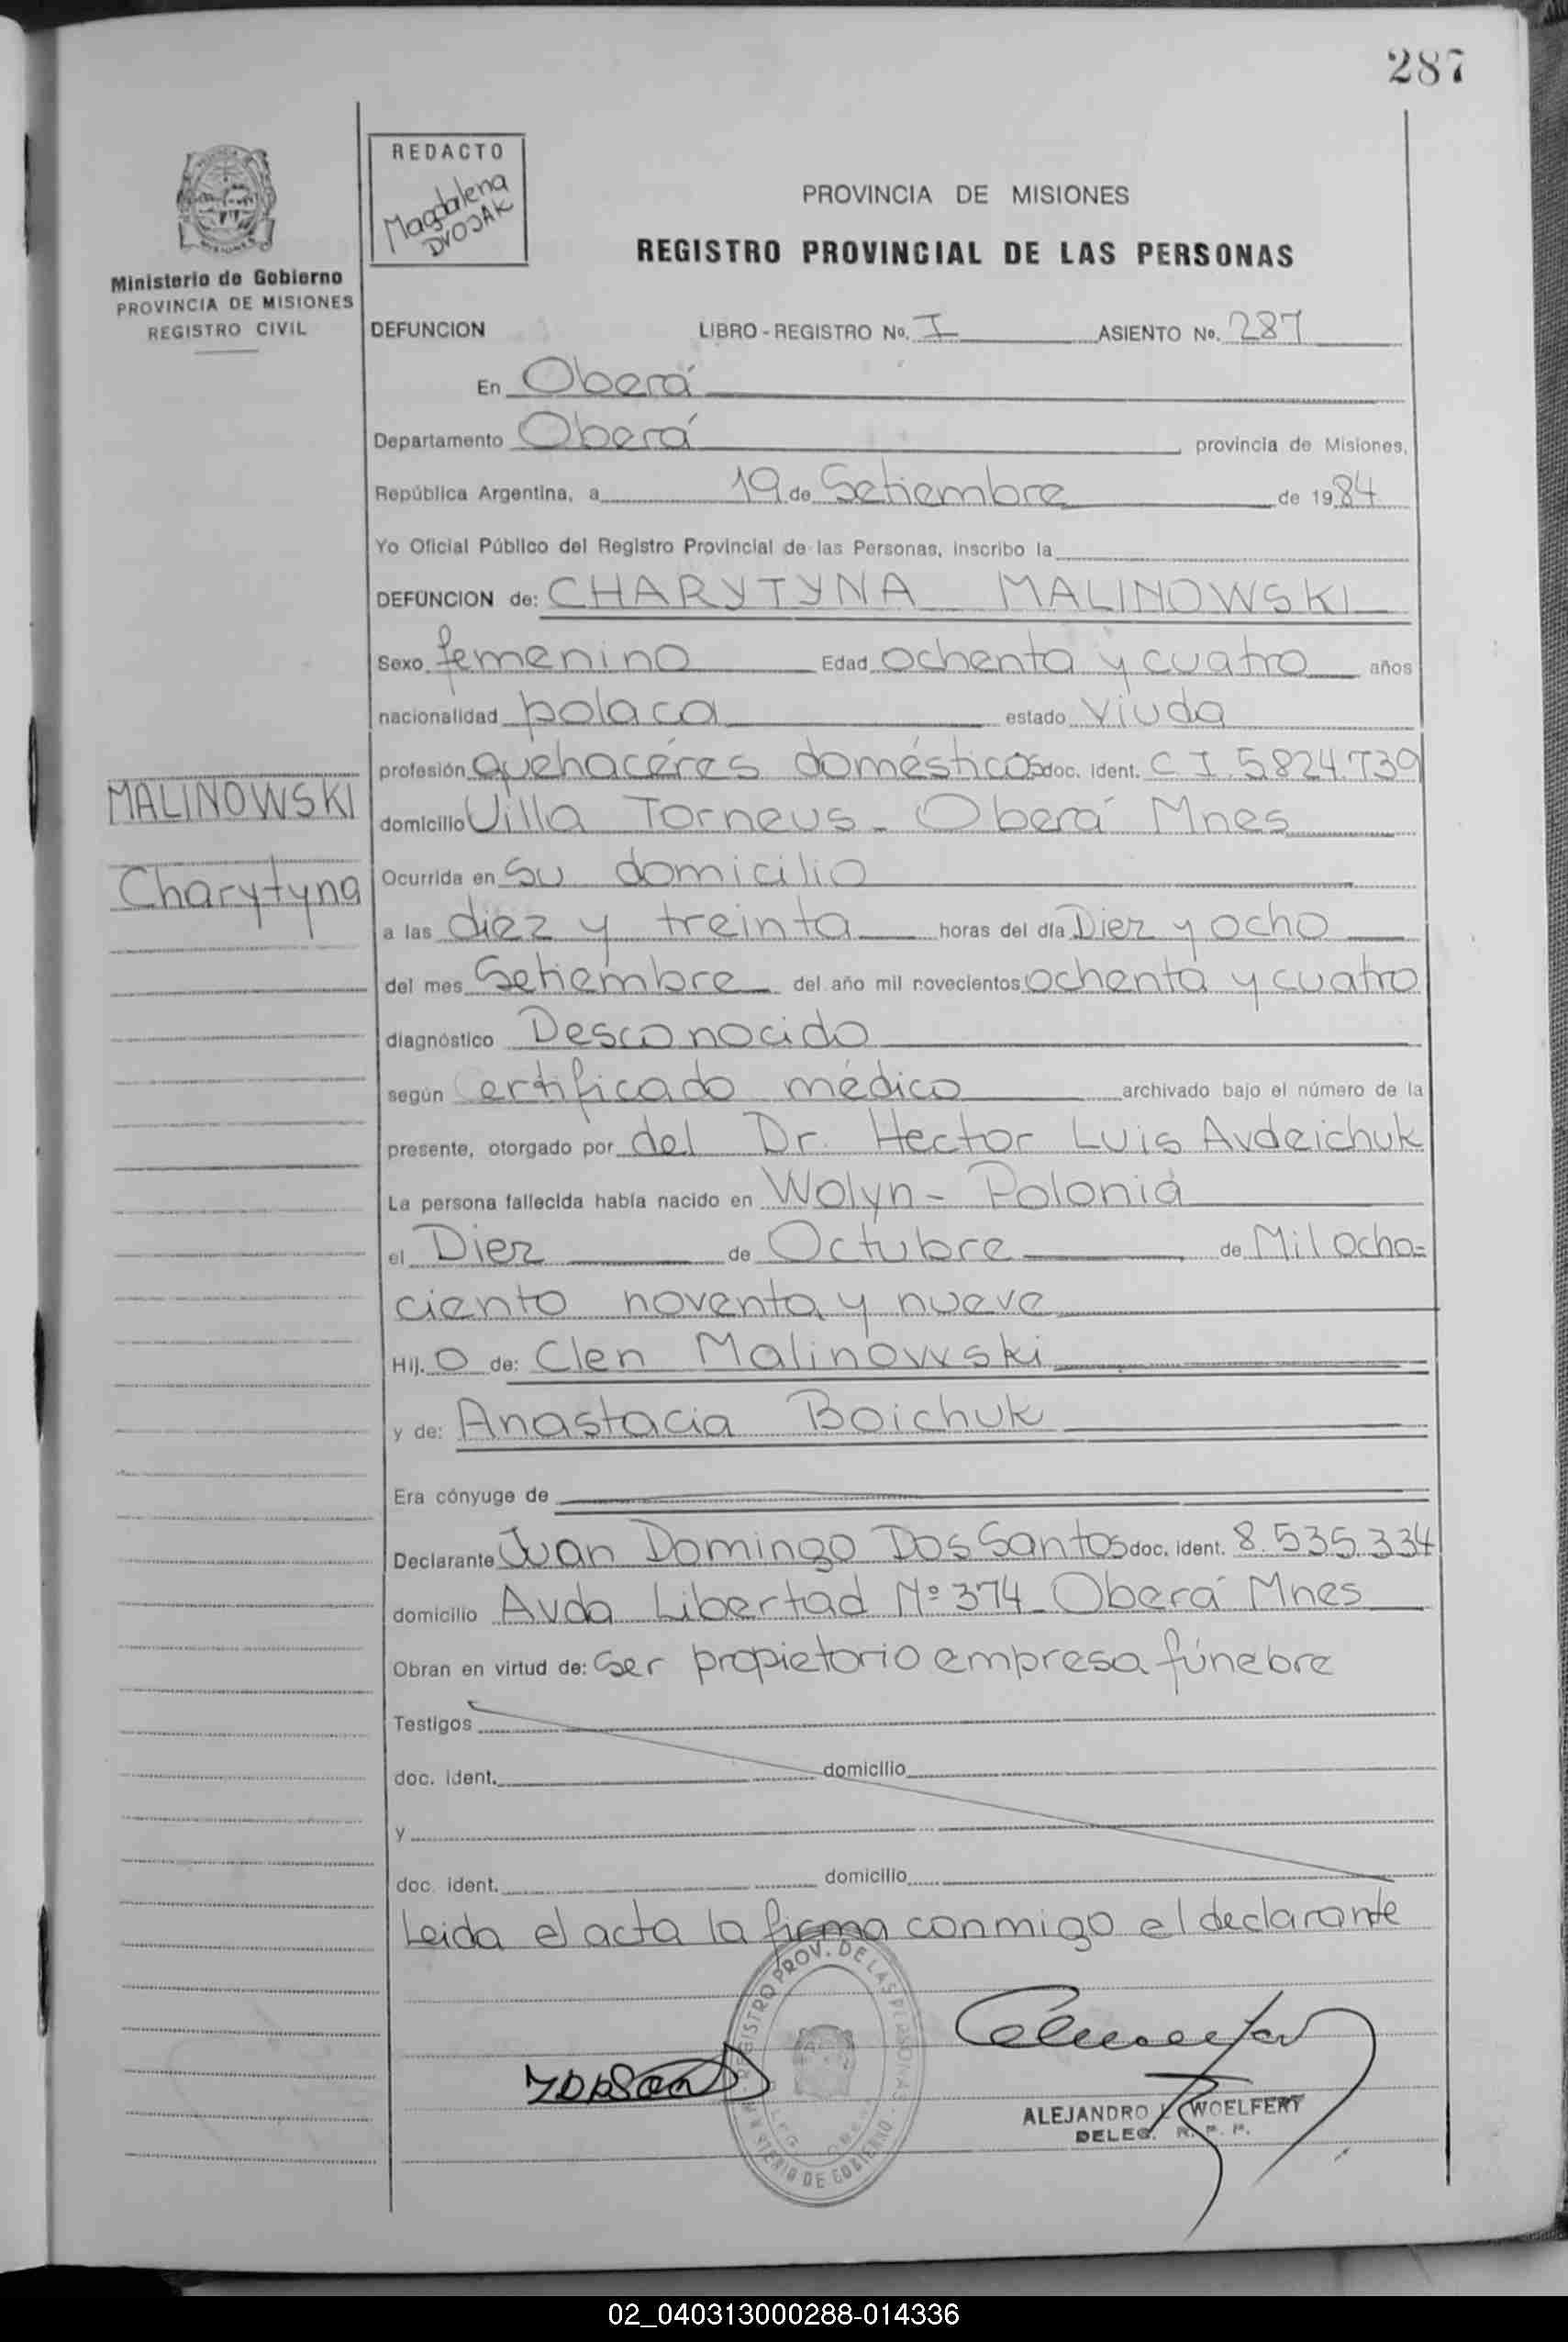 287
REDACTO
Magdalena
DVOJAK
PROVINCIA DE MISIONES
REGISTRO PROVINCIAL DE LAS PERSONAS
Ministerio de Gobierno
PROVINCIA DE MISIONES
REGISTRO CIVIL
DEFUNCION LIBRO - REGISTRO No. I ASIENTO No. 287
En Oberá
Departamento Oberá provincia de Misiones,
República Argentina, a 19 de Setiembre de 1984
Yo Oficial Público del Registro Provincial de las Personas, inscribo la
DEFUNCION de: CHARYTYNA MALINOWSKI
Sexo femenino Edad ochenta y cuatro años
nacionalidad polaca estado viuda
profesión quéhacéres domésticos doc. ident. C I 5824.739
MALINOWSKI
domicilio Villa Torneus - Oberá Mnes
Charytyna
Ocurrida en su domicilio
a las diez y treinta horas del día Diez y ocho
del mes Setiembre del año mil novecientos ochenta y cuatro
diagnóstico Desconocido
según Certificado médico archivado bajo el número de la
presente, otorgado por del Dr. Hector Luis Avdeichuk
La persona fallecida había nacido en Wolyn - Polonia
el Diez de Octubre de Mil ocho=
ciento noventa y nueve
Hij. O de: Clen Malinowski
y de: Anastacia Boichuk
Era cónyuge de
Declarante Juan Domingo Dos Santos doc. ident. 8.535.334
domicilio Avda Libertad Nº 374 - Oberá Mnes
Obran en virtud de: Ser propietorio empresa fúnebre
Testigos
doc. ident. domicilio
y
doc. ident. domicilio
Leida el acta la firma conmigo el declarante
REGISTRO PROV. DE LAS PERSONAS
MINISTERIO DE GOBIERNO
ALEJANDRO WOELFERT
DELEG. R. P. P.
02_040313000288-014336